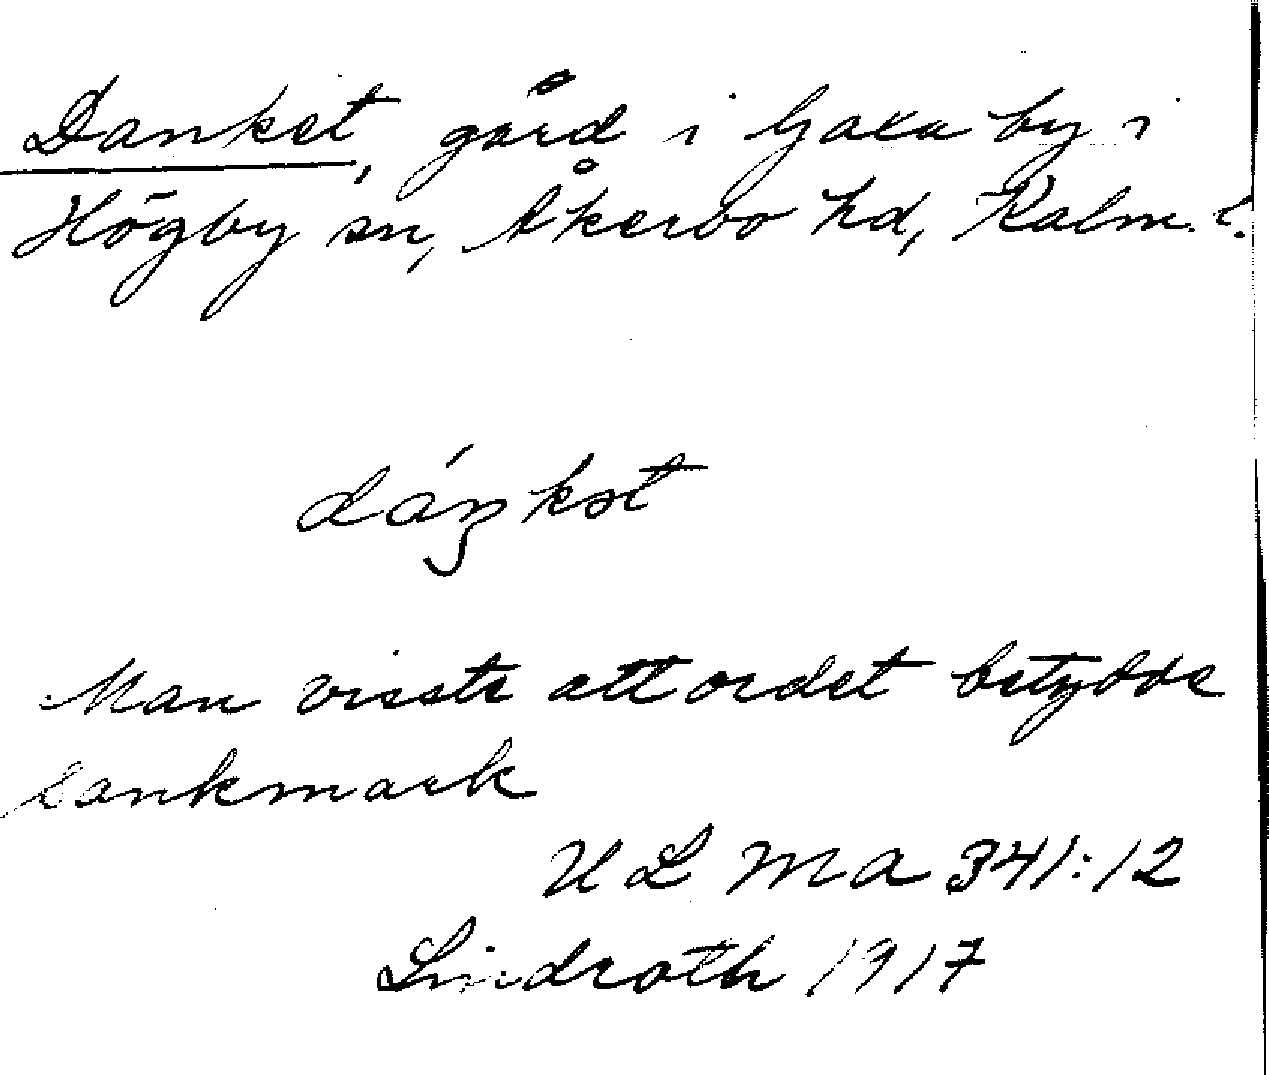 Danket, gård i Gaxa by i
Högby sn, Åkerbo hd, Kalm. l.
dáŋkət
Man visste att ordet betydde
sankmark
ULMA 341:12
Lindroth 1917